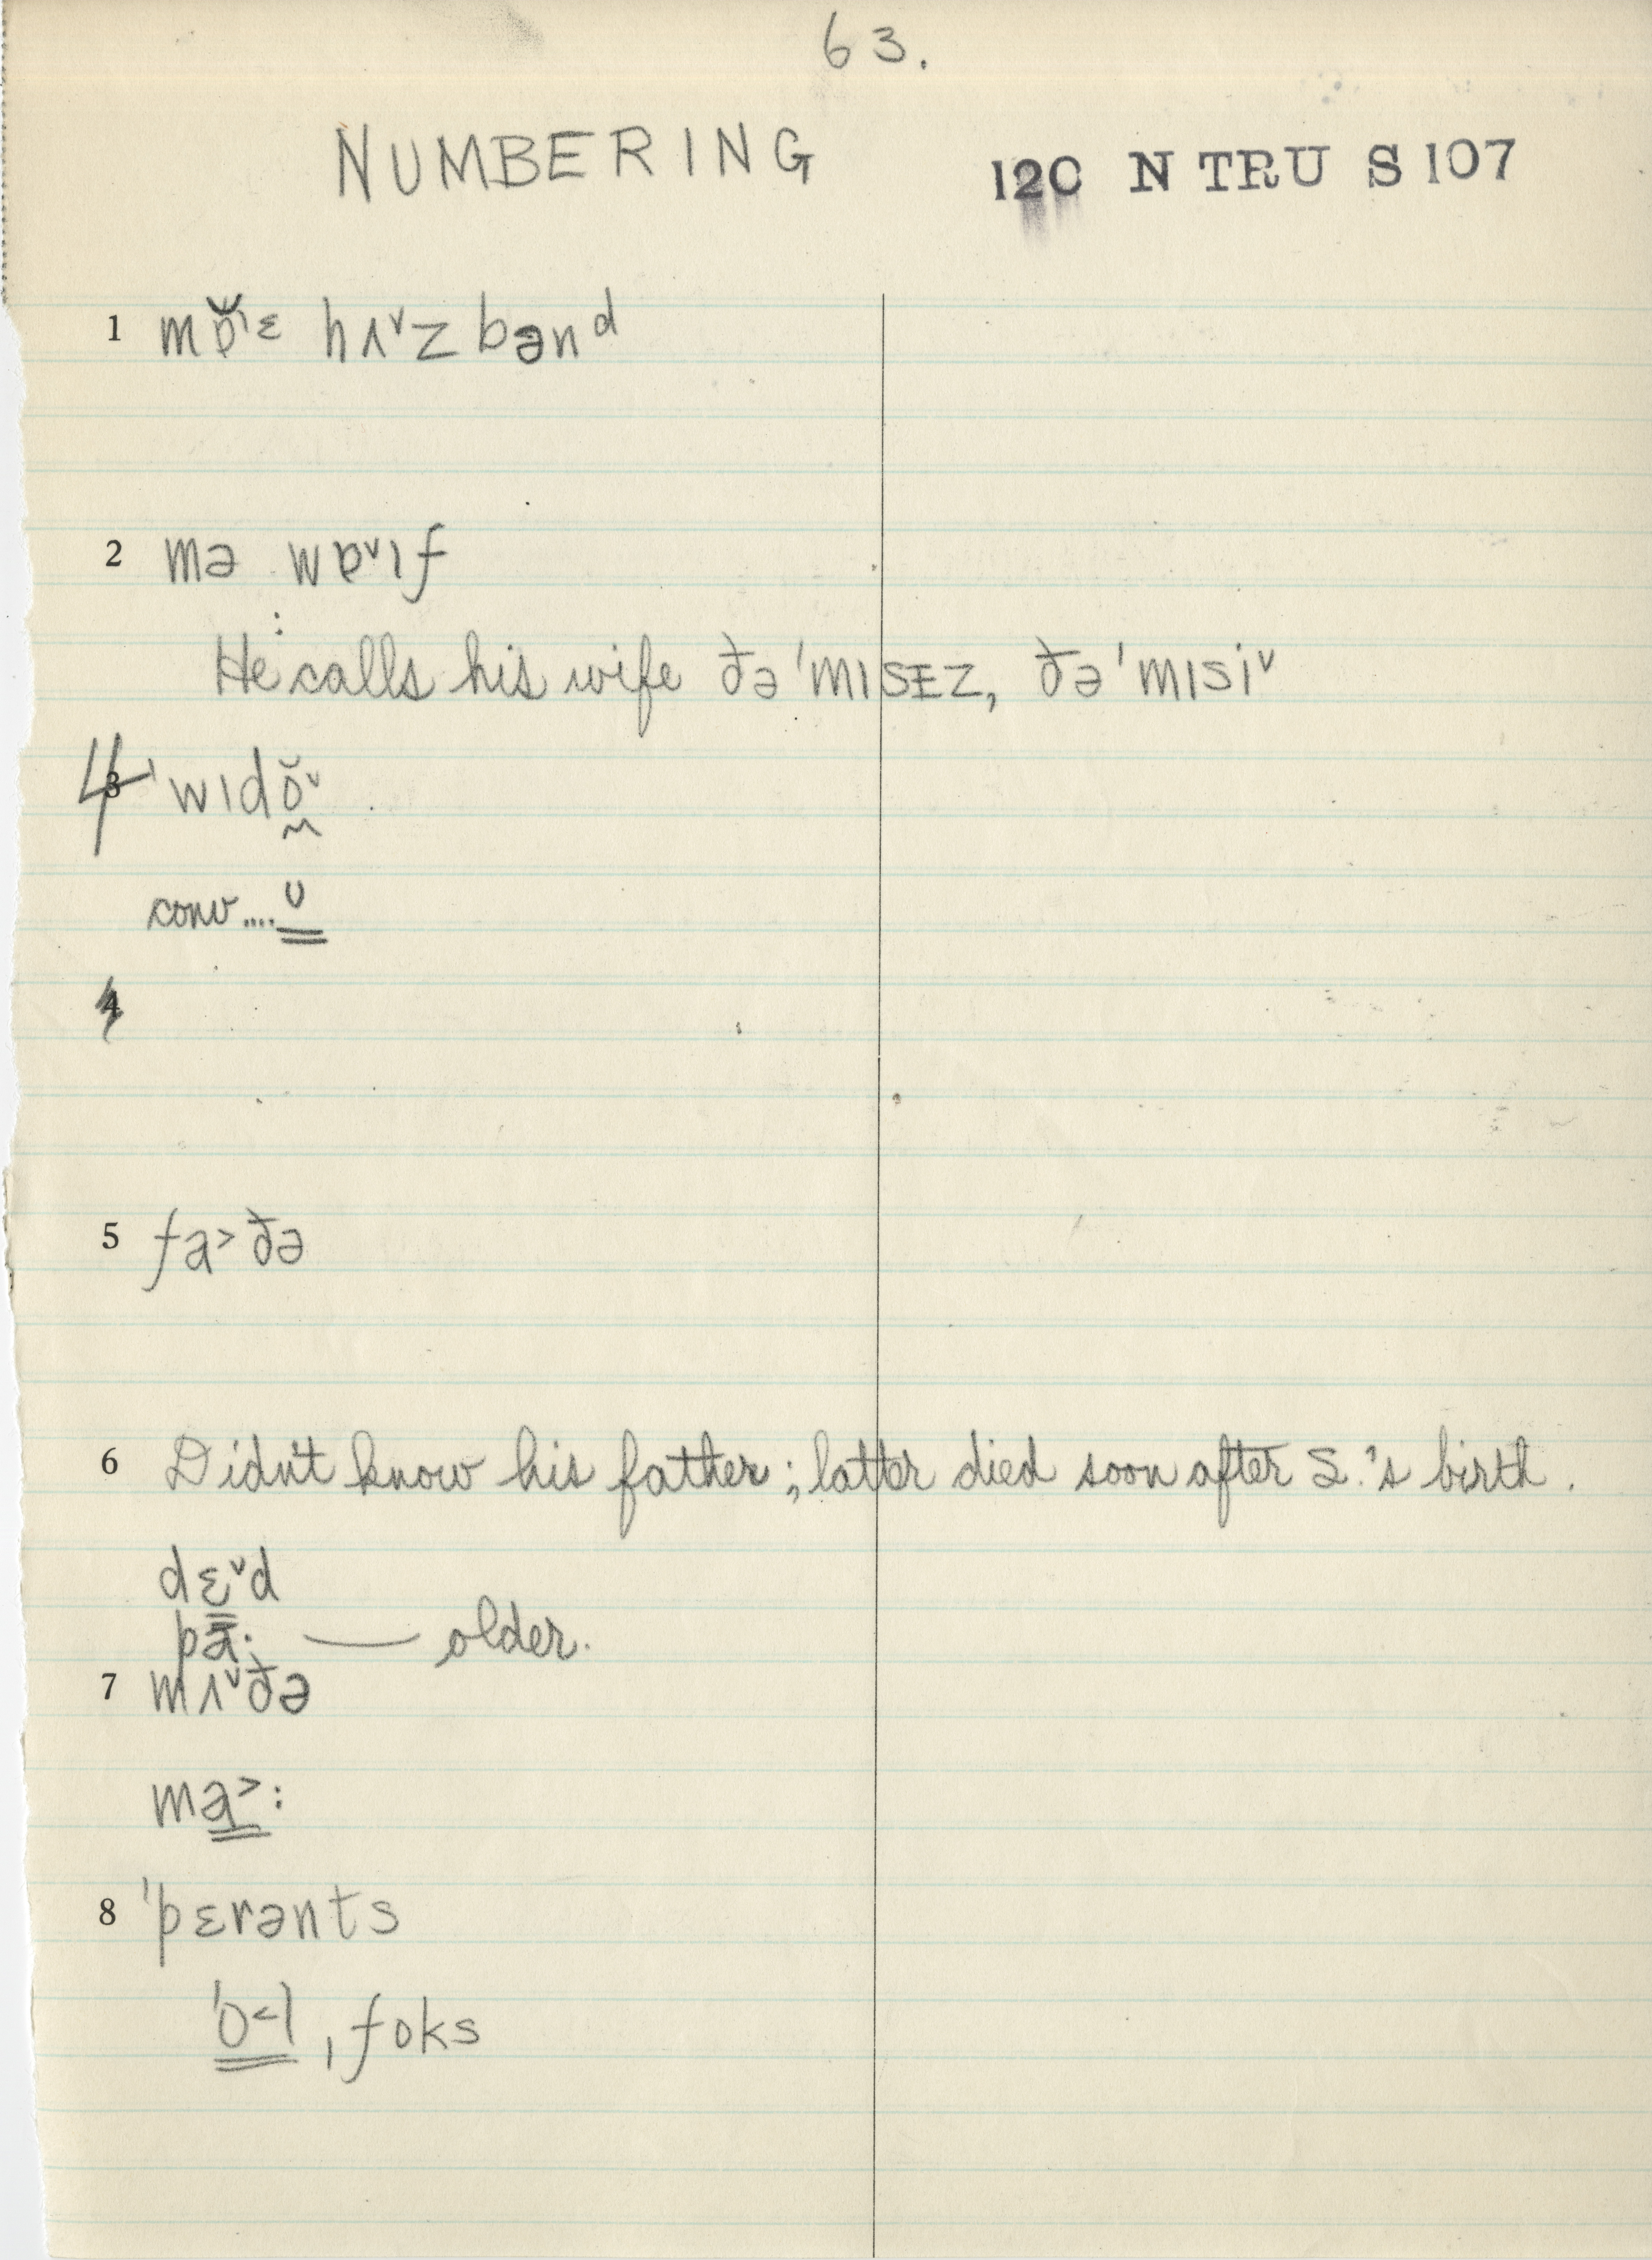 63.
NUMBERING
120 N TRU S 107
1 mɐ̆ˡᵋ hʌˇzbənᵈ
2 mə wɐˇıf
He calls his wife ðə 'mısɛz, ðə 'mısiˇ
4 'wıdŏˇ
conv.... ʊ
4
5 fa˃ðə
6 Didn't know his father; latter died soon after S.'s birth.
dɛˇd
pa: — older.
7 mʌˇðə
ma˃:
8 'pɛrənts
'o˂l ˌfoks